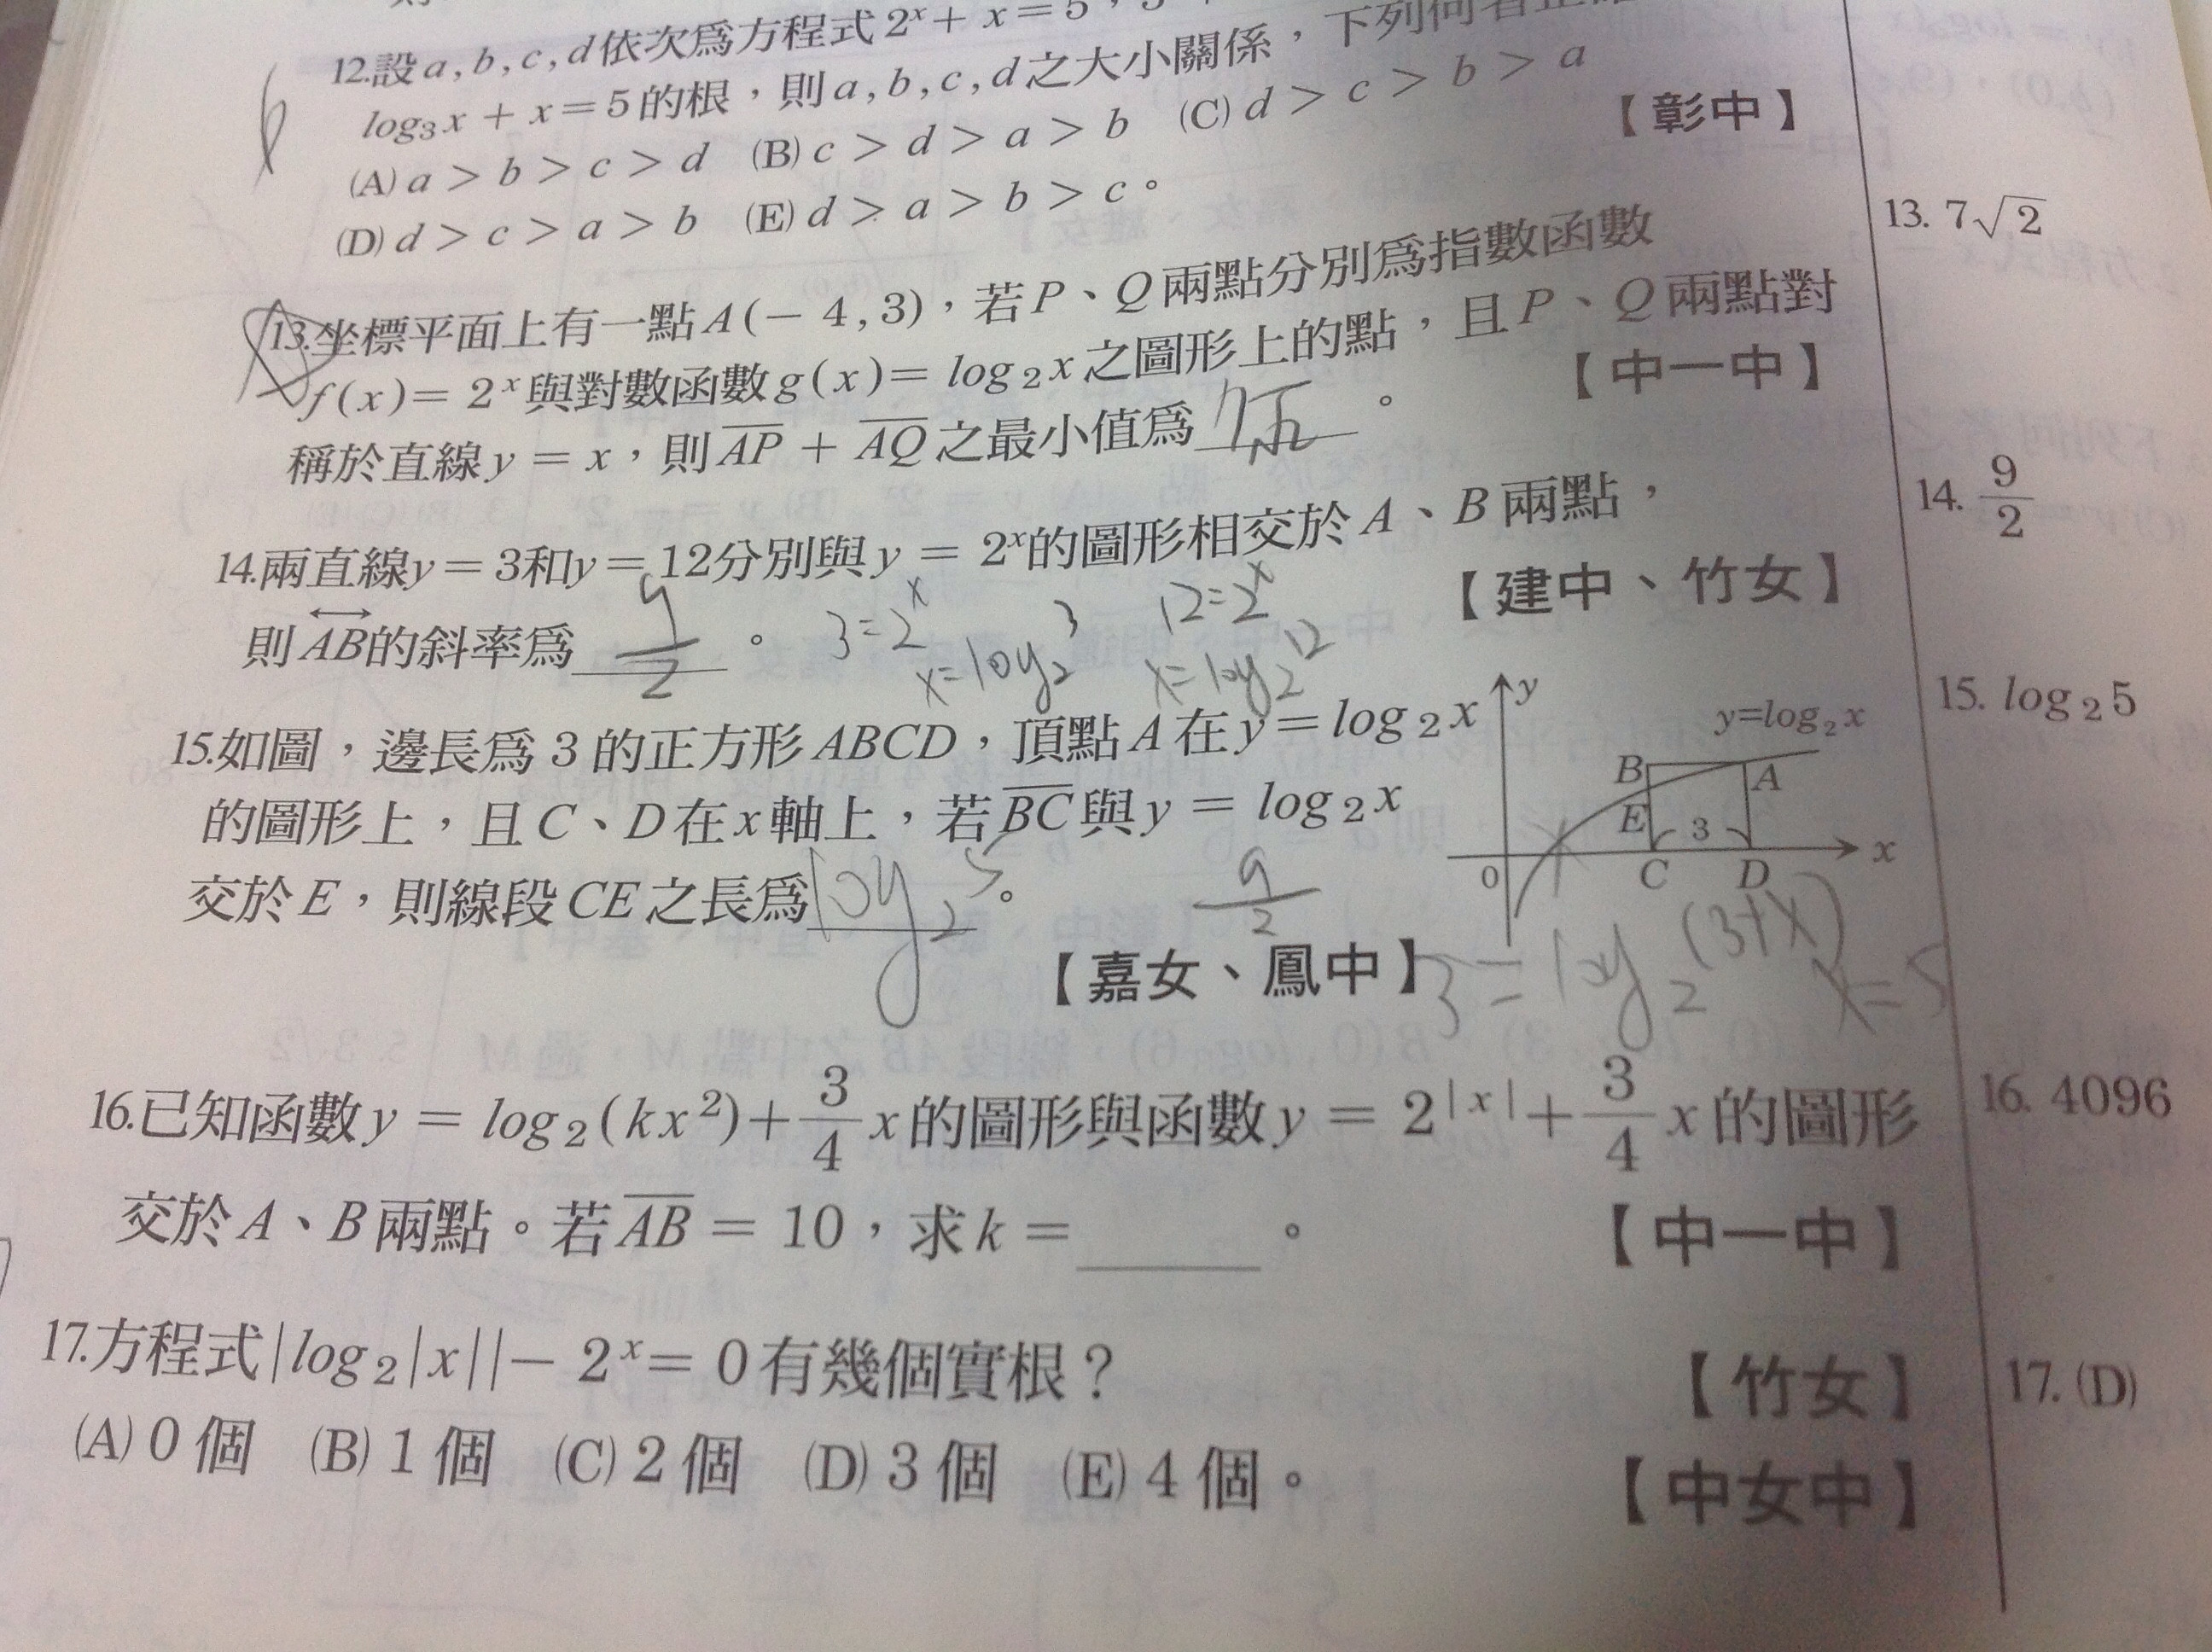 12.設a,b,c,d依次爲方程式2ˣ+x=5,3
log₃x+x=5的根,則a,b,c,d之大小關係,下列何者正確
(A)a>b>c>d (B)c>d>a>b (C)d>c>b>a
(D)d>c>a>b (E)d>a>b>c。
【彰中】
13.坐標平面上有一點A(-4,3),若P、Q兩點分別爲指數函數
f(x)=2ˣ與對數函數g(x)=log₂x之圖形上的點,且P、Q兩點對
稱於直線y=x,則A̅P̅+A̅Q̅之最小值爲 7√2 。
【中一中】
13. 7√2
14.兩直線y=3和y=12分別與y=2ˣ的圖形相交於A、B兩點,
則AB的斜率爲 9/2 。
【建中、竹女】
3=2ˣ 12=2ˣ
x=log₂3 x=log₂12
14. 9/2
15.如圖,邊長爲3的正方形ABCD,頂點A在y=log₂x
的圖形上,且C、D在x軸上,若B̅C̅與y=log₂x
交於E,則線段CE之長爲 log₂5 。
【嘉女、鳳中】
y
y=log₂x
B A
E 3
0 C D x
9/2
3=log₂(3+x)
x=5
15. log₂5
16.已知函數y=log₂(kx²)+3/4x的圖形與函數y=2|x|+3/4x的圖形
交於A、B兩點。若A̅B̅=10,求k= 。
【中一中】
16. 4096
17.方程式|log₂|x||-2ˣ=0有幾個實根?
【竹女】
17. (D)
(A)0個 (B)1個 (C)2個 (D)3個 (E)4個。
【中女中】